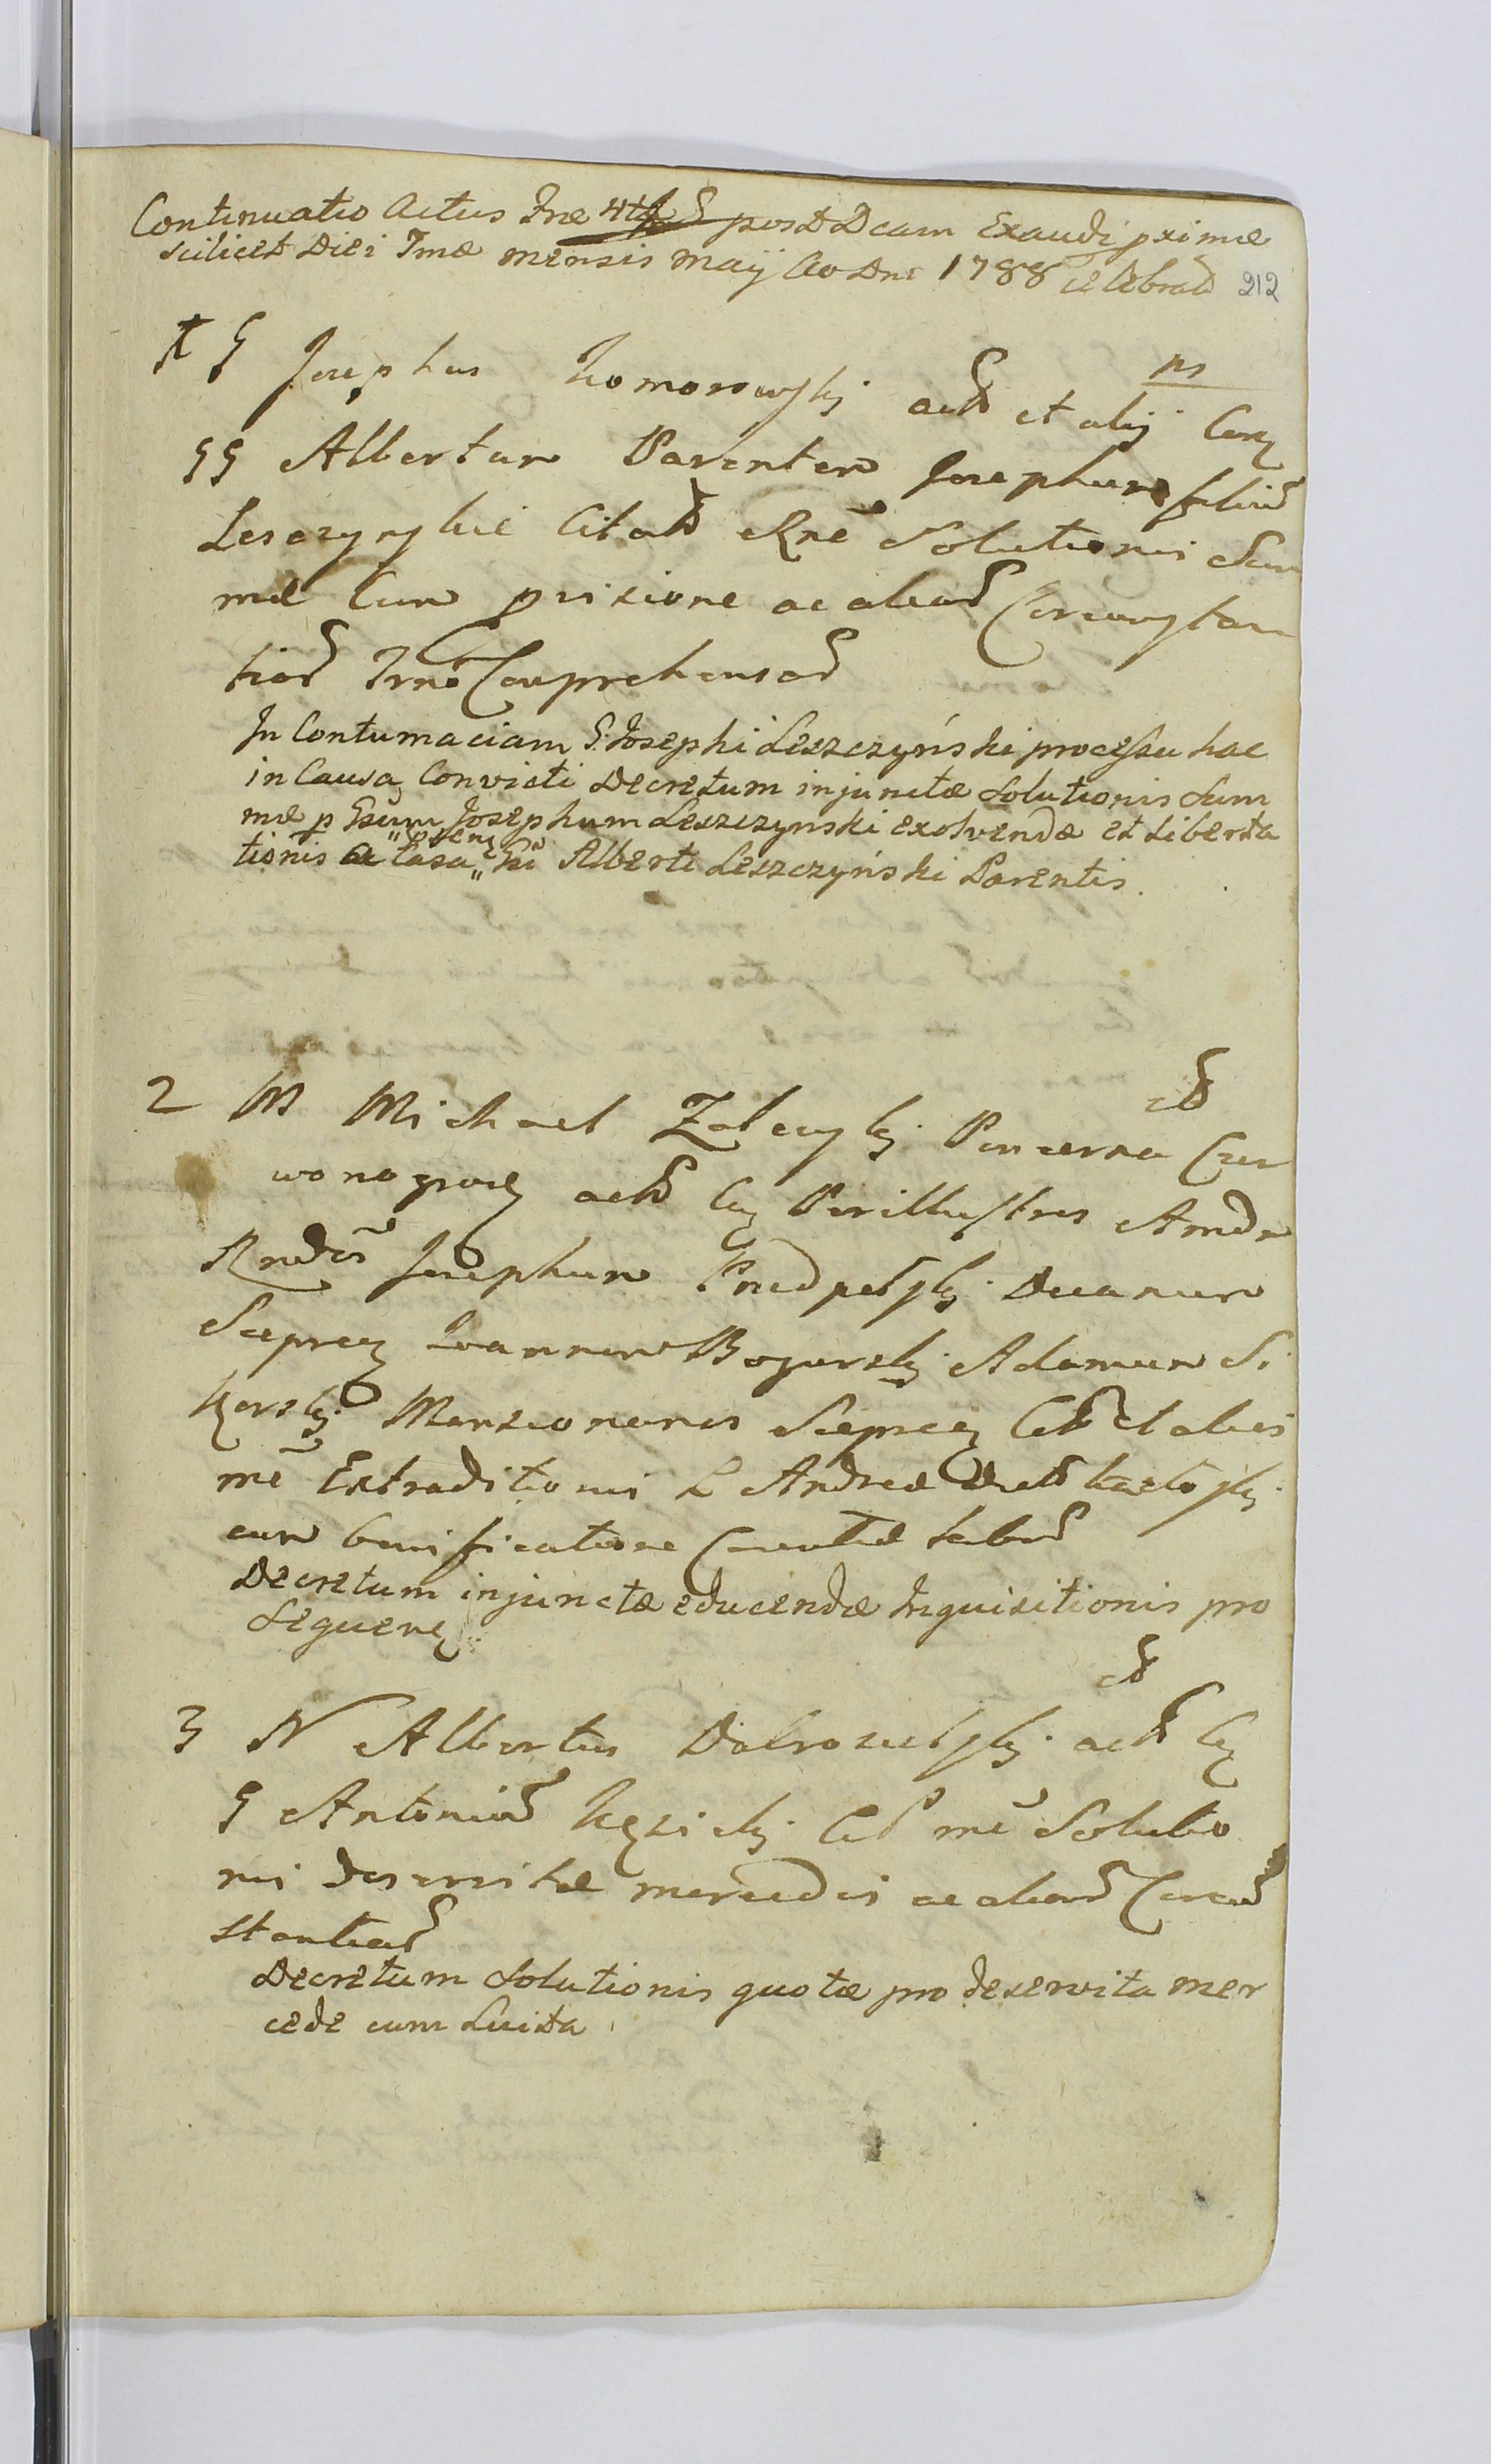 Continuatio Actus Fræ post Dcam Exaudi pximæ
scilicet Diei Imæ mensis Maij Ao Dni 1788 celebrat 212
G Josephus Komorowskj act et alij Con
ps
GG Albertum Parentem Josephum filiu
Leszczynskie Citat Rne Solutionis Sum
mæ Cum prisione ac aliar Circumstan
tiar Trno Comprehensar
In Contumaciam G. Josephi Leszczyński processu hac
in Causa Convicti Decretum injunctæ Solutionis Sum
mæ p Gsum Josephum Leszczynski exolvendæ et Liberta
tionis a Casa Gsi Alberti Leszczyński Parentis.
psenti
2 M Michael Zaleuskj Pincerna Czer
wonogroden act Con Perillustres Amdn
Rndos Josephum Podpelskj Decanum
Sieprcen Joannem Bogurskj Adamum Si
korskj Mansionarios Sieprcen Citt et alios
me Extraditionis L Andreæ
cum bonificatione Census
Decretum injunctæ educendæ Inquisitionis pro
Sequene
3 N Albertus Dobrosielskj act Con
G Antonium Kęsickj Cit me Solutio
nis deservitæ mercedis ac aliar Circum
stantiar
Decretum Solutionis quotæ pro deservita mer
cede cum Luita